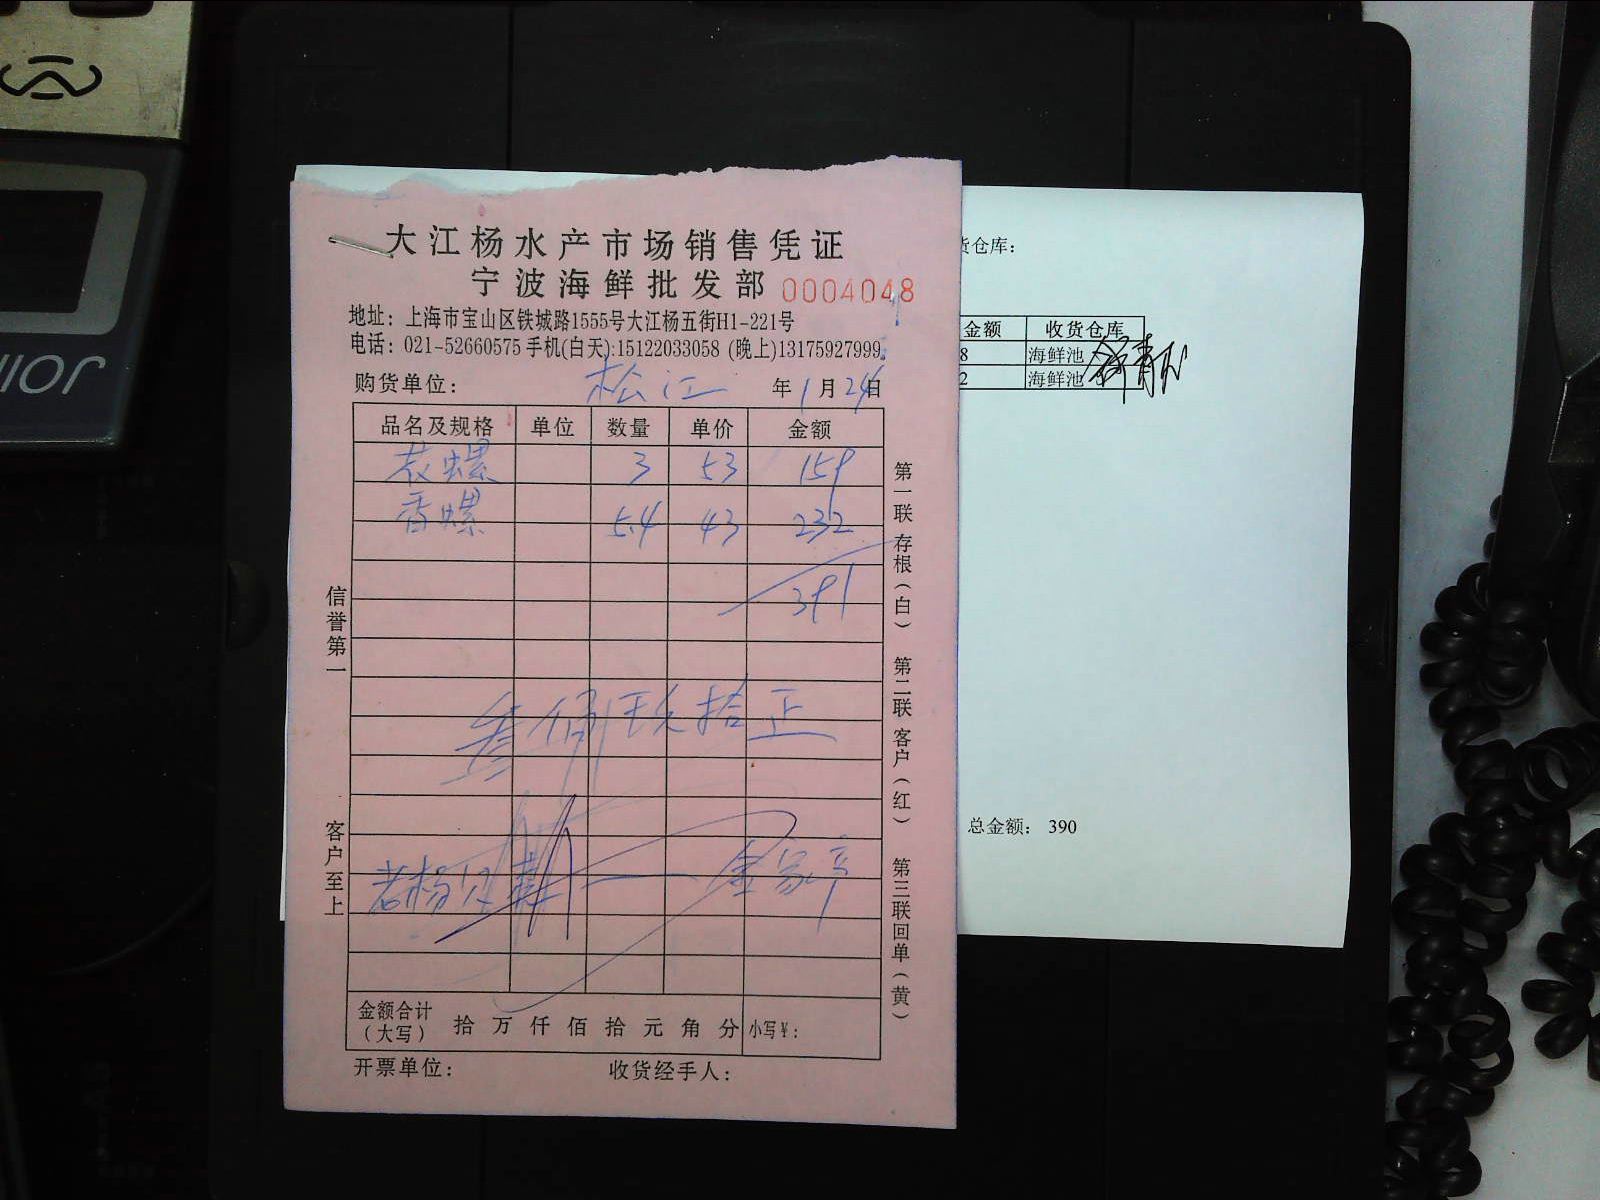 大江杨水产市场销售凭证
宁波海鲜批发部 0004048
地址：上海市宝山区铁城路1555号大江杨五街H1-221号
电话：021-52660575 手机(白天):15122033058 (晚上)13175927999
购货单位： 松江 年 1 月 24 日
品名及规格 单位 数量 单价 金额
花螺 3 53 159
香螺 5.4 43 232
391
叁佰玖拾正
金额合计（大写） 拾 万 仟 佰 拾 元 角 分 小写¥：
开票单位： 收货经手人：
信誉第一
客户至上
第一联 存根（白） 第二联 客户（红） 第三联 回单（黄）
货仓库：
金额 收货仓库
8 海鲜池
2 海鲜池
总金额： 390
JOINUS